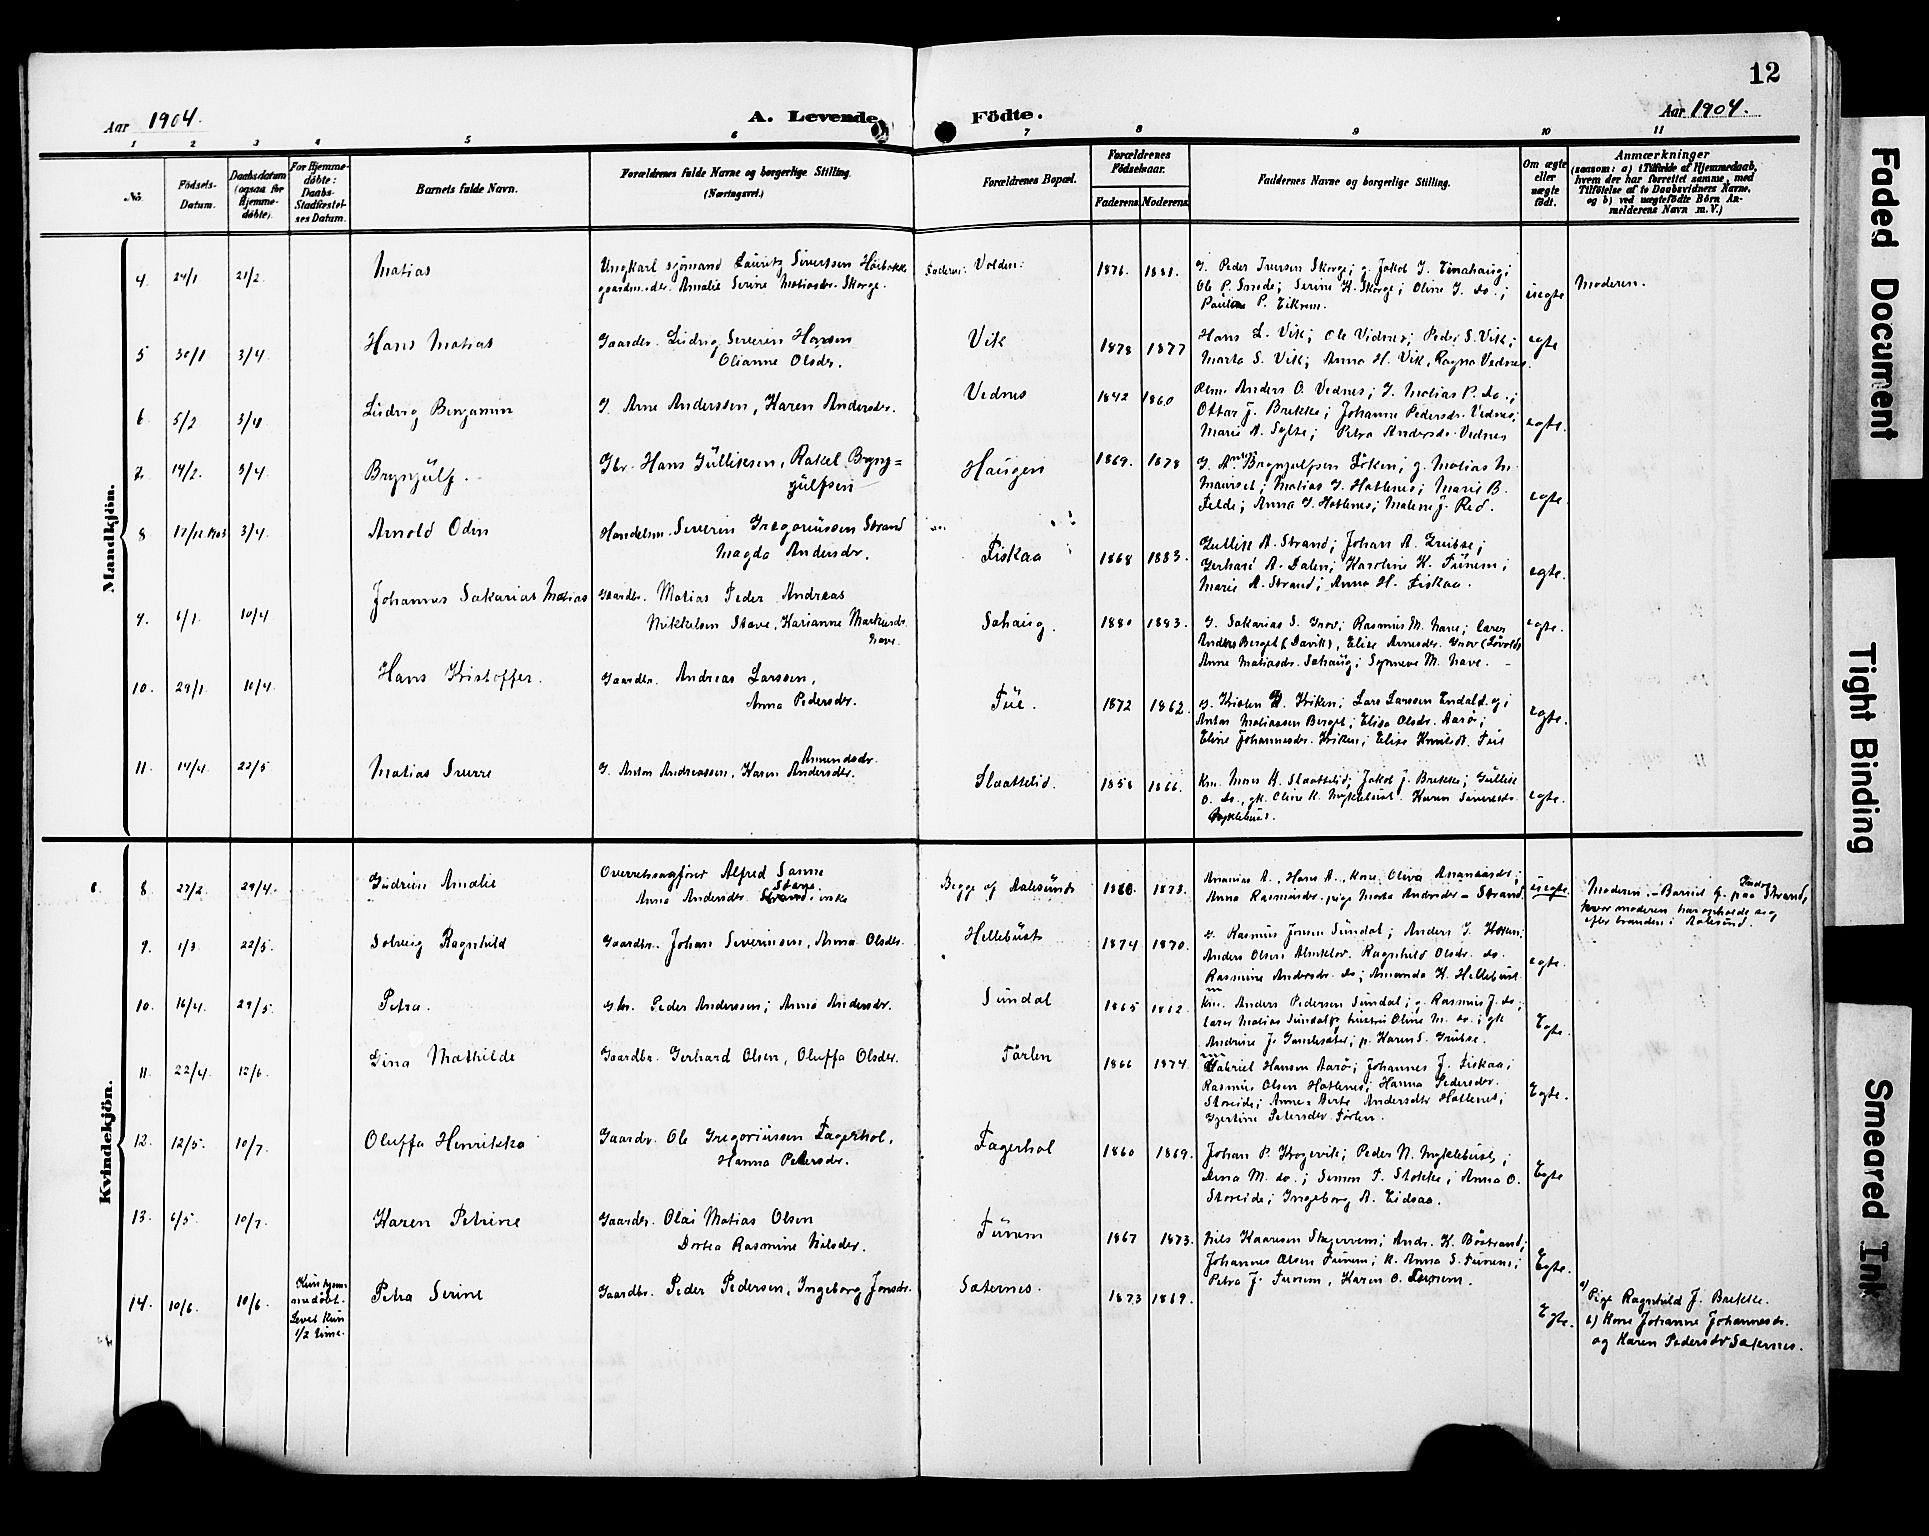 12
Aar 1904.
A. Levende
Födte.
Aar 1904.
1 2 3 4 5 6 7 8 9 10 11
No.
Födsels-
Datum.
Daabsdatum
(ogsaa for
Hjemme-
döbte).
For Hjemme-
döbte:
Daabs-
Stadfæstel-
ses Datum.
Barnets fulde Navn.
Forældrenes fulde Navne og borgerlige Stilling.
(Næringsvei.)
Forældrenes Bopæl.
Forældrenes
Födselsaar.
Faderens. Moderens.
Faddernes Navne og borgerlige Stilling.
Om ægte
eller
uægte
födt.
Anmærkninger
(saasom: a) i Tilfælde af Hjemmedaab,
hvem der har forrettet samme, med
Tilföielse af to Daabsvidners Navne,
og b) ved uægtefödte Börn An-
melderens Navn m. V.)
Mandkjön.
4. 24/1 21/2 Matias
Ungkarl sjömand Lauritz Sivertsen
gaardm.dr. Amalie Serine Matiasdr. Skorge.
Faderen: Volden. 1876. 1881.
G. Peder Iversen Skorge; g. Jakob J.
Ole P. Smede; Serine K. Skorge; Oline J. do.;
Pauline P. Eikrem.
uegte
Moderen.
5 30/1 3/4 Hans Matias
Gaardbr. Ludvig Severin Hansen
Olianne Olsdr.
Vik 1878 1877
Hans L. Vik; Ole Vidnes; Peder S. Vik;
Marta S. Vik; Anna H. Vik, Ragna Vednes.
egte
6 5/2 3/4 Ludvig Benjamin
G. Arne Anderssen, Karen Andersdr.
Vednes 1842 1860
Anders O. Vednes; G. Matias P. do.;
Ottar J. Brekke; Johanne Pedersdr. Vednes;
Marie A. Sylte; Petra Andersdr. Vednes
egte.
7. 14/2. 3/4 Brynjulf.
Gbr. Hans Gulliksen, Rakel Bryn-
julfsen
Haugen 1869. 1878
G. Brynjulfsen Löken; g. Matias M.
Mauriset; Matias J. Hatlenes; Marie B.
Felde; Anna J. Hatlenes; Malene J. Red.
egte.
8 17/12 1903 3/4. Arnold Odin
Handelsm. Severin Gregoriussen Strand
Magda Andersdr.
Fiskaa 1868 1883.
Gullik A. Strand; Johan A. Grubse;
Gerhard A. Dalen; Karoline K. Furnem;
Marie A. Strand; Anna H. Fiskaa.
egte.
9. 6/1 10/4 Johannes Sakarias Matias
Gaardbr. Matias Peder Andreas
Mikkelsen Stave, Karianne Markusdr.
Nave.
Sahaug. 1880 1883.
G. Sakarias S. Grov; Rasmus M. Nave; Lærer
Anders Berget (Davik), Elise Arnesdr. Grov (Lövold)
Anne Matiasdr. Sahaug; Synneve M. Nave.
egte.
10. 29/1. 10/4 Hans Kristoffer.
Gaardbr. Andreas Larssen,
Anna Pedersdr.
Tue. 1872 1862.
G. Kristen Kriken; Lars Larssen Endal d.y.;
Anton Matiassen Berget; Elisa Olsdr. Aarö;
Eline Johannesdr. Kriken; Elise Knutsdr. Tue
egte.
11. 14/4. 22/5. Matias Sverre
Amundsdr.
G. Anton Andreassen, Karen Andersdr.
Slaattelid. 1858 1866.
Km. Mons A. Slaattelid; Jakob J. Brekke; Gullik
O. do., gk. Oline K. Myklebust. Karen Sivertsdr.
Myklebust.
egte.
Kvindekjön.
8. 27/2. 24/4. Gudrun Amalie
Overretssagförer Alfred Sanne
Stave.
Anna Andersdr. Strand, enke
Begge af Aalesund 1880. 1873.
Ananias A., Hans A., Kone Oliva Ananiasdr.;
Anna Rasmusdr. pige Marta Andersdr. – Strand
uegte.
Moderen. – Barnet f. paa Indre Strand,
hvor moderen har opholdt sig
efter branden i Aalesund.
9. 1/3 22/5. Solveig Ragnhild
Gaardbr. Johan Severinsen, Anna Olsdr.
Hellebust 1874 1870.
g. Rasmus Jonsen Sundal; Anders J.
Anders Olsen Almklov. Ragnhild Olsdr. do.
Rasmine Andersdr. do; Amanda K. Hellebust.
egte.
10. 16/4. 29/5. Petra.
Gbr. Peder Anderssen; Anna Andersdr.
Sundal 1865 1862.
Km. Anders Pedersen Sundal; g. Rasmus J. do;
Lærer Matias Sundal og hustru Oline M. do.; gk
Andrine J. Gamlesæter; p. Karen S. Grubse.
Egte.
11. 22/4. 12/6. Gina Mathilde
Gaardbr. Gerhard Olsen, Oluffa Olsdr.
Förlen 1866 1874.
Gabriel Hansen Aarö; Johannes J. Fiskaa;
Rasmus Olsen Hatlenes; Hanna Pedersdr.
Storeide; Anne-Berte Andersdtr Hatlenes;
Gjertine Petersdr. Förlen.
Egte.
12. 12/5. 10/7. Oluffa Henrikka
Gaardr. Ole Gregoriussen Fagerhol,
Hanna Petersdr.
Fagerhol 1860 1869.
Johan P. Krogevik; Peder N. Myklebust;
Lena M. do.; Simon F. Stokke; Anna O.
Storeide; Ingeborg A. Eidsaa.
Egte
13. 6/5. 10/7. Karen Petrine
Gaardbr. Olai Matias Olsen
Dortea Rasmine Nilsdr.
Furnem 1867 1873.
Nils Knutsen Skagerven; Andr. K. Böstrand;
Johannes Olsen Furnem; K. Anna S. Furnem;
Petra J. Furnem, Karen O. Furnem.
Egte.
14. 10/6. 10/6. Kun hjem-
medöbt.
Levet kun
1/2 time.
Petra Serine
Gaardbr. Peder Pedersen, Ingeborg Jonsdr.
Sæternes. 1873 1869.
Egte.
a) Pige Ragnhild J. Brekke.
b) Kone Johanne Johannesdr.
og Karen Pedersdr Sæternes.
Faded Document
Tight Binding
Smeared Ink